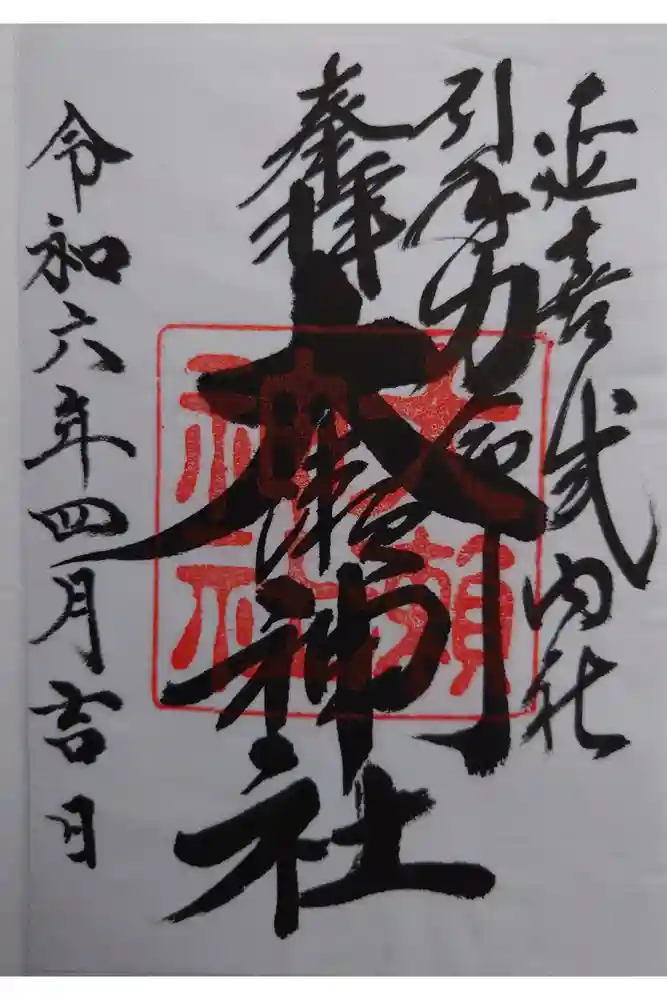 延喜式内社
引手力命
奉拝
大瀬神社
大瀬神社
令和六年四月吉日